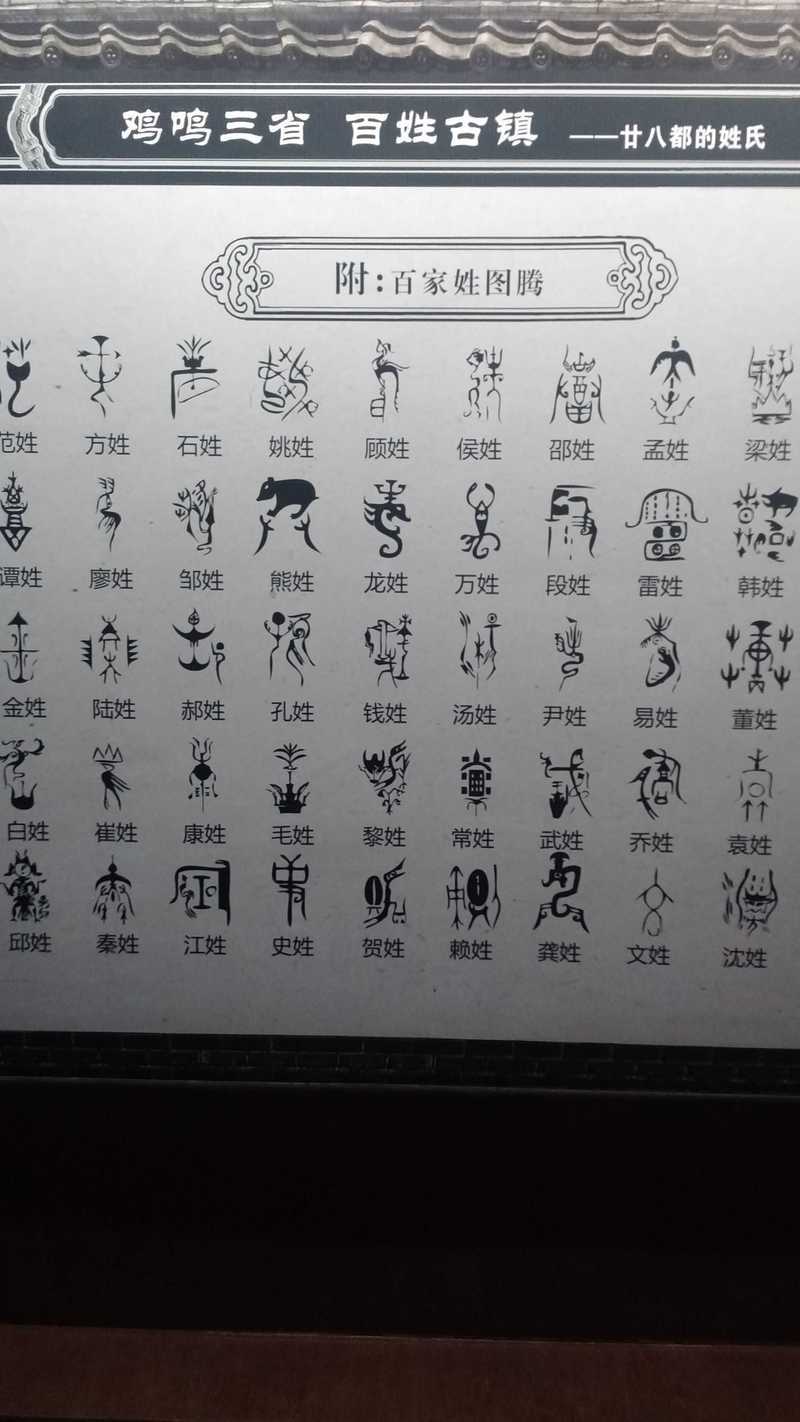 鸡鸣三省 百姓古镇 ——廿八都的姓氏
附:百家姓图腾
范姓 方姓 石姓 姚姓 顾姓 侯姓 邵姓 孟姓 梁姓
谭姓 廖姓 邹姓 熊姓 龙姓 万姓 段姓 雷姓 韩姓
金姓 陆姓 郝姓 孔姓 钱姓 汤姓 尹姓 易姓 董姓
白姓 崔姓 康姓 毛姓 黎姓 常姓 武姓 乔姓 袁姓
邱姓 秦姓 江姓 史姓 贺姓 赖姓 龚姓 文姓 沈姓